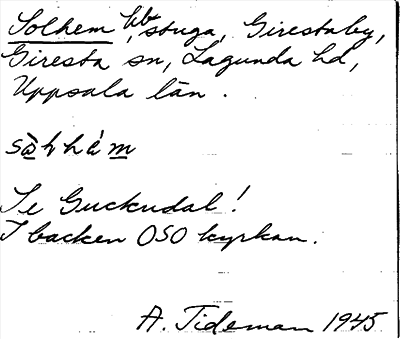 Solhem hbr, stuga, Girestaby,
Giresta sn, Lagunda hd,
Uppsala län.
sòɫhèm
Se Guckudal!
I backen OSO kyrkan.
A. Tideman 1945